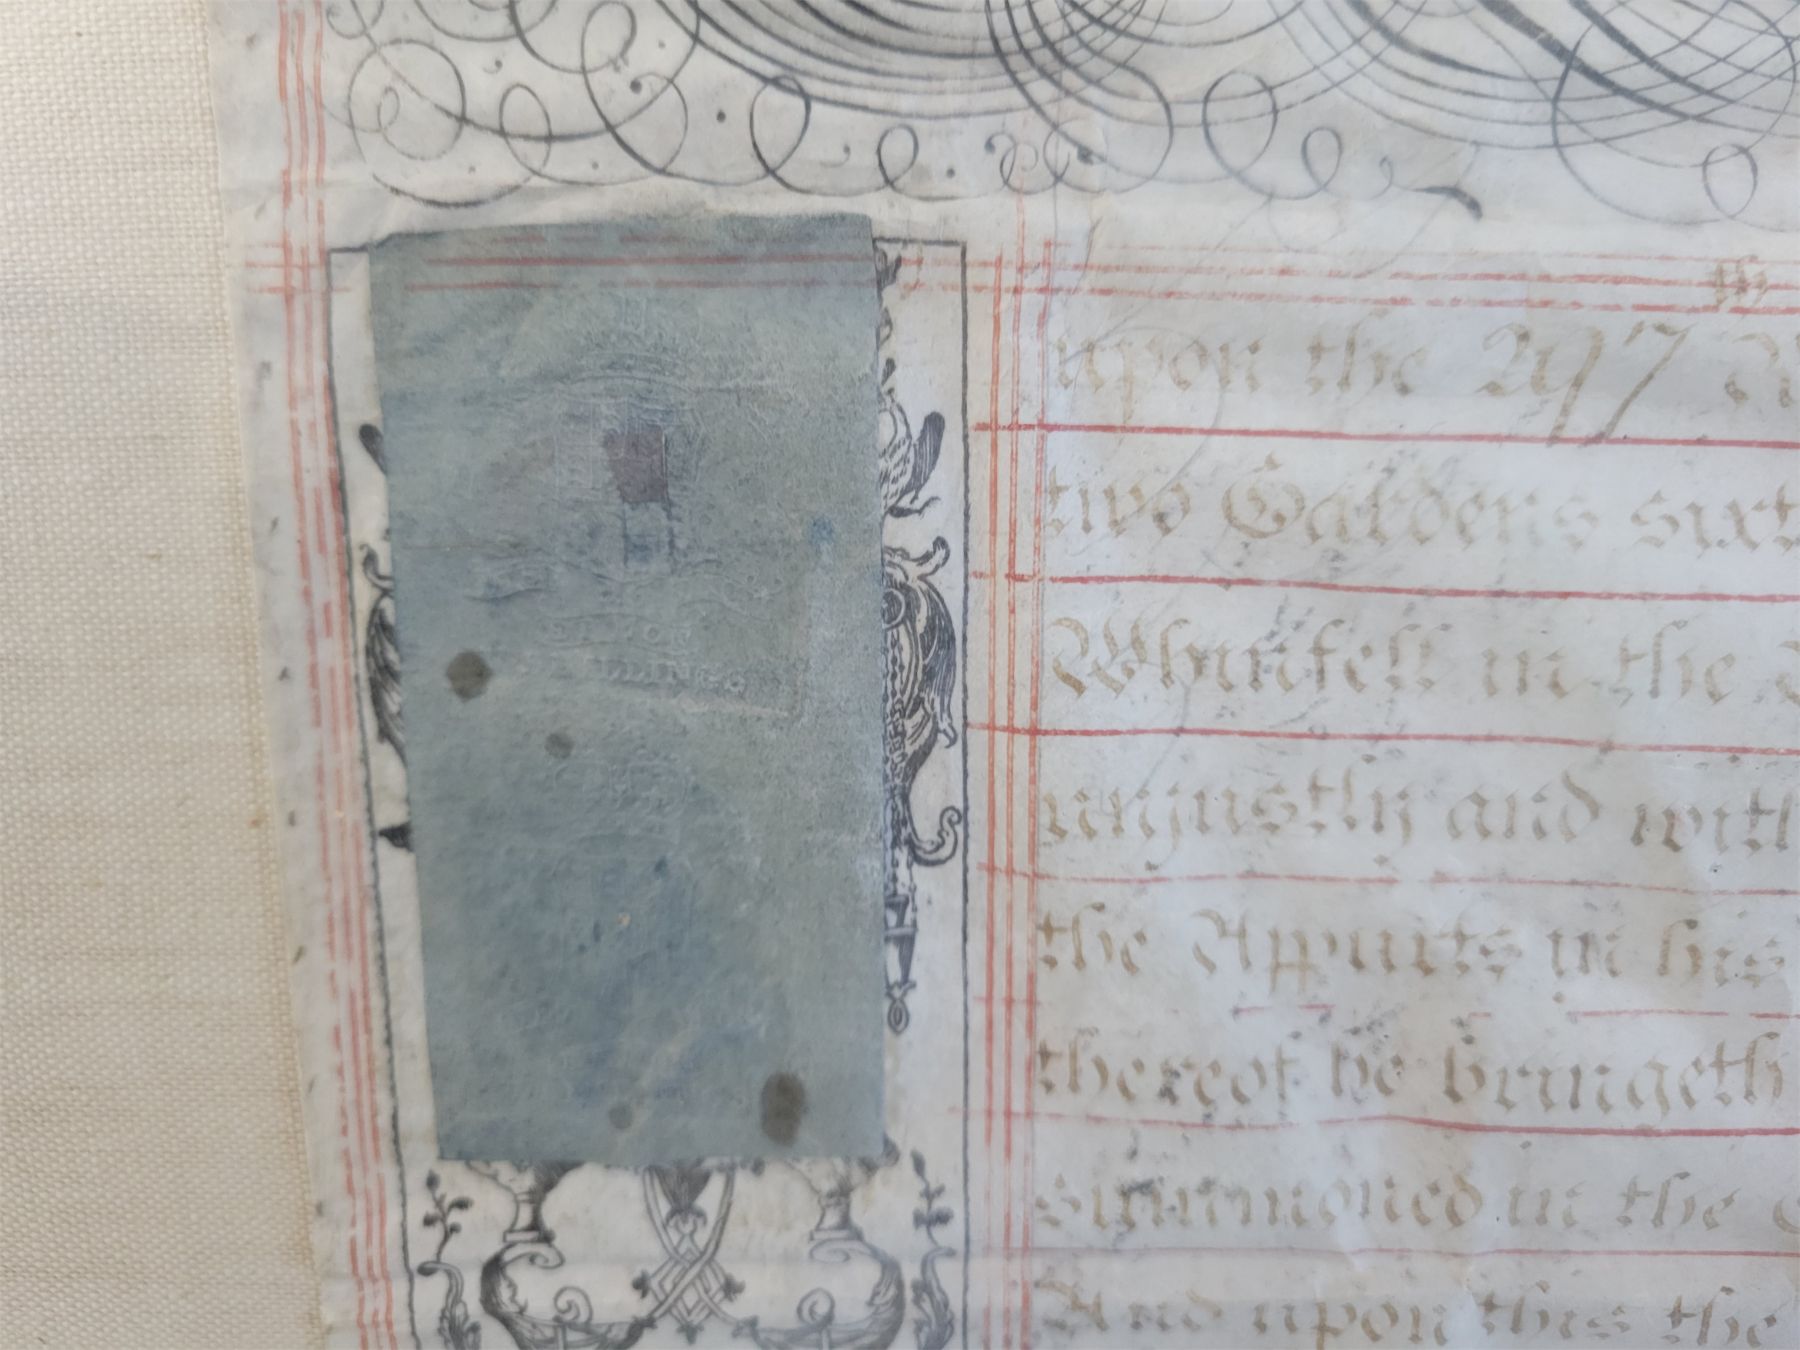 th
upon the 297
SIX POUNDS
SHILLINGS
two Gardens sixt
Whinfell in the
unjustly and with
the Appurts in his
thereof he bringeth
summoned in the
And upon this the